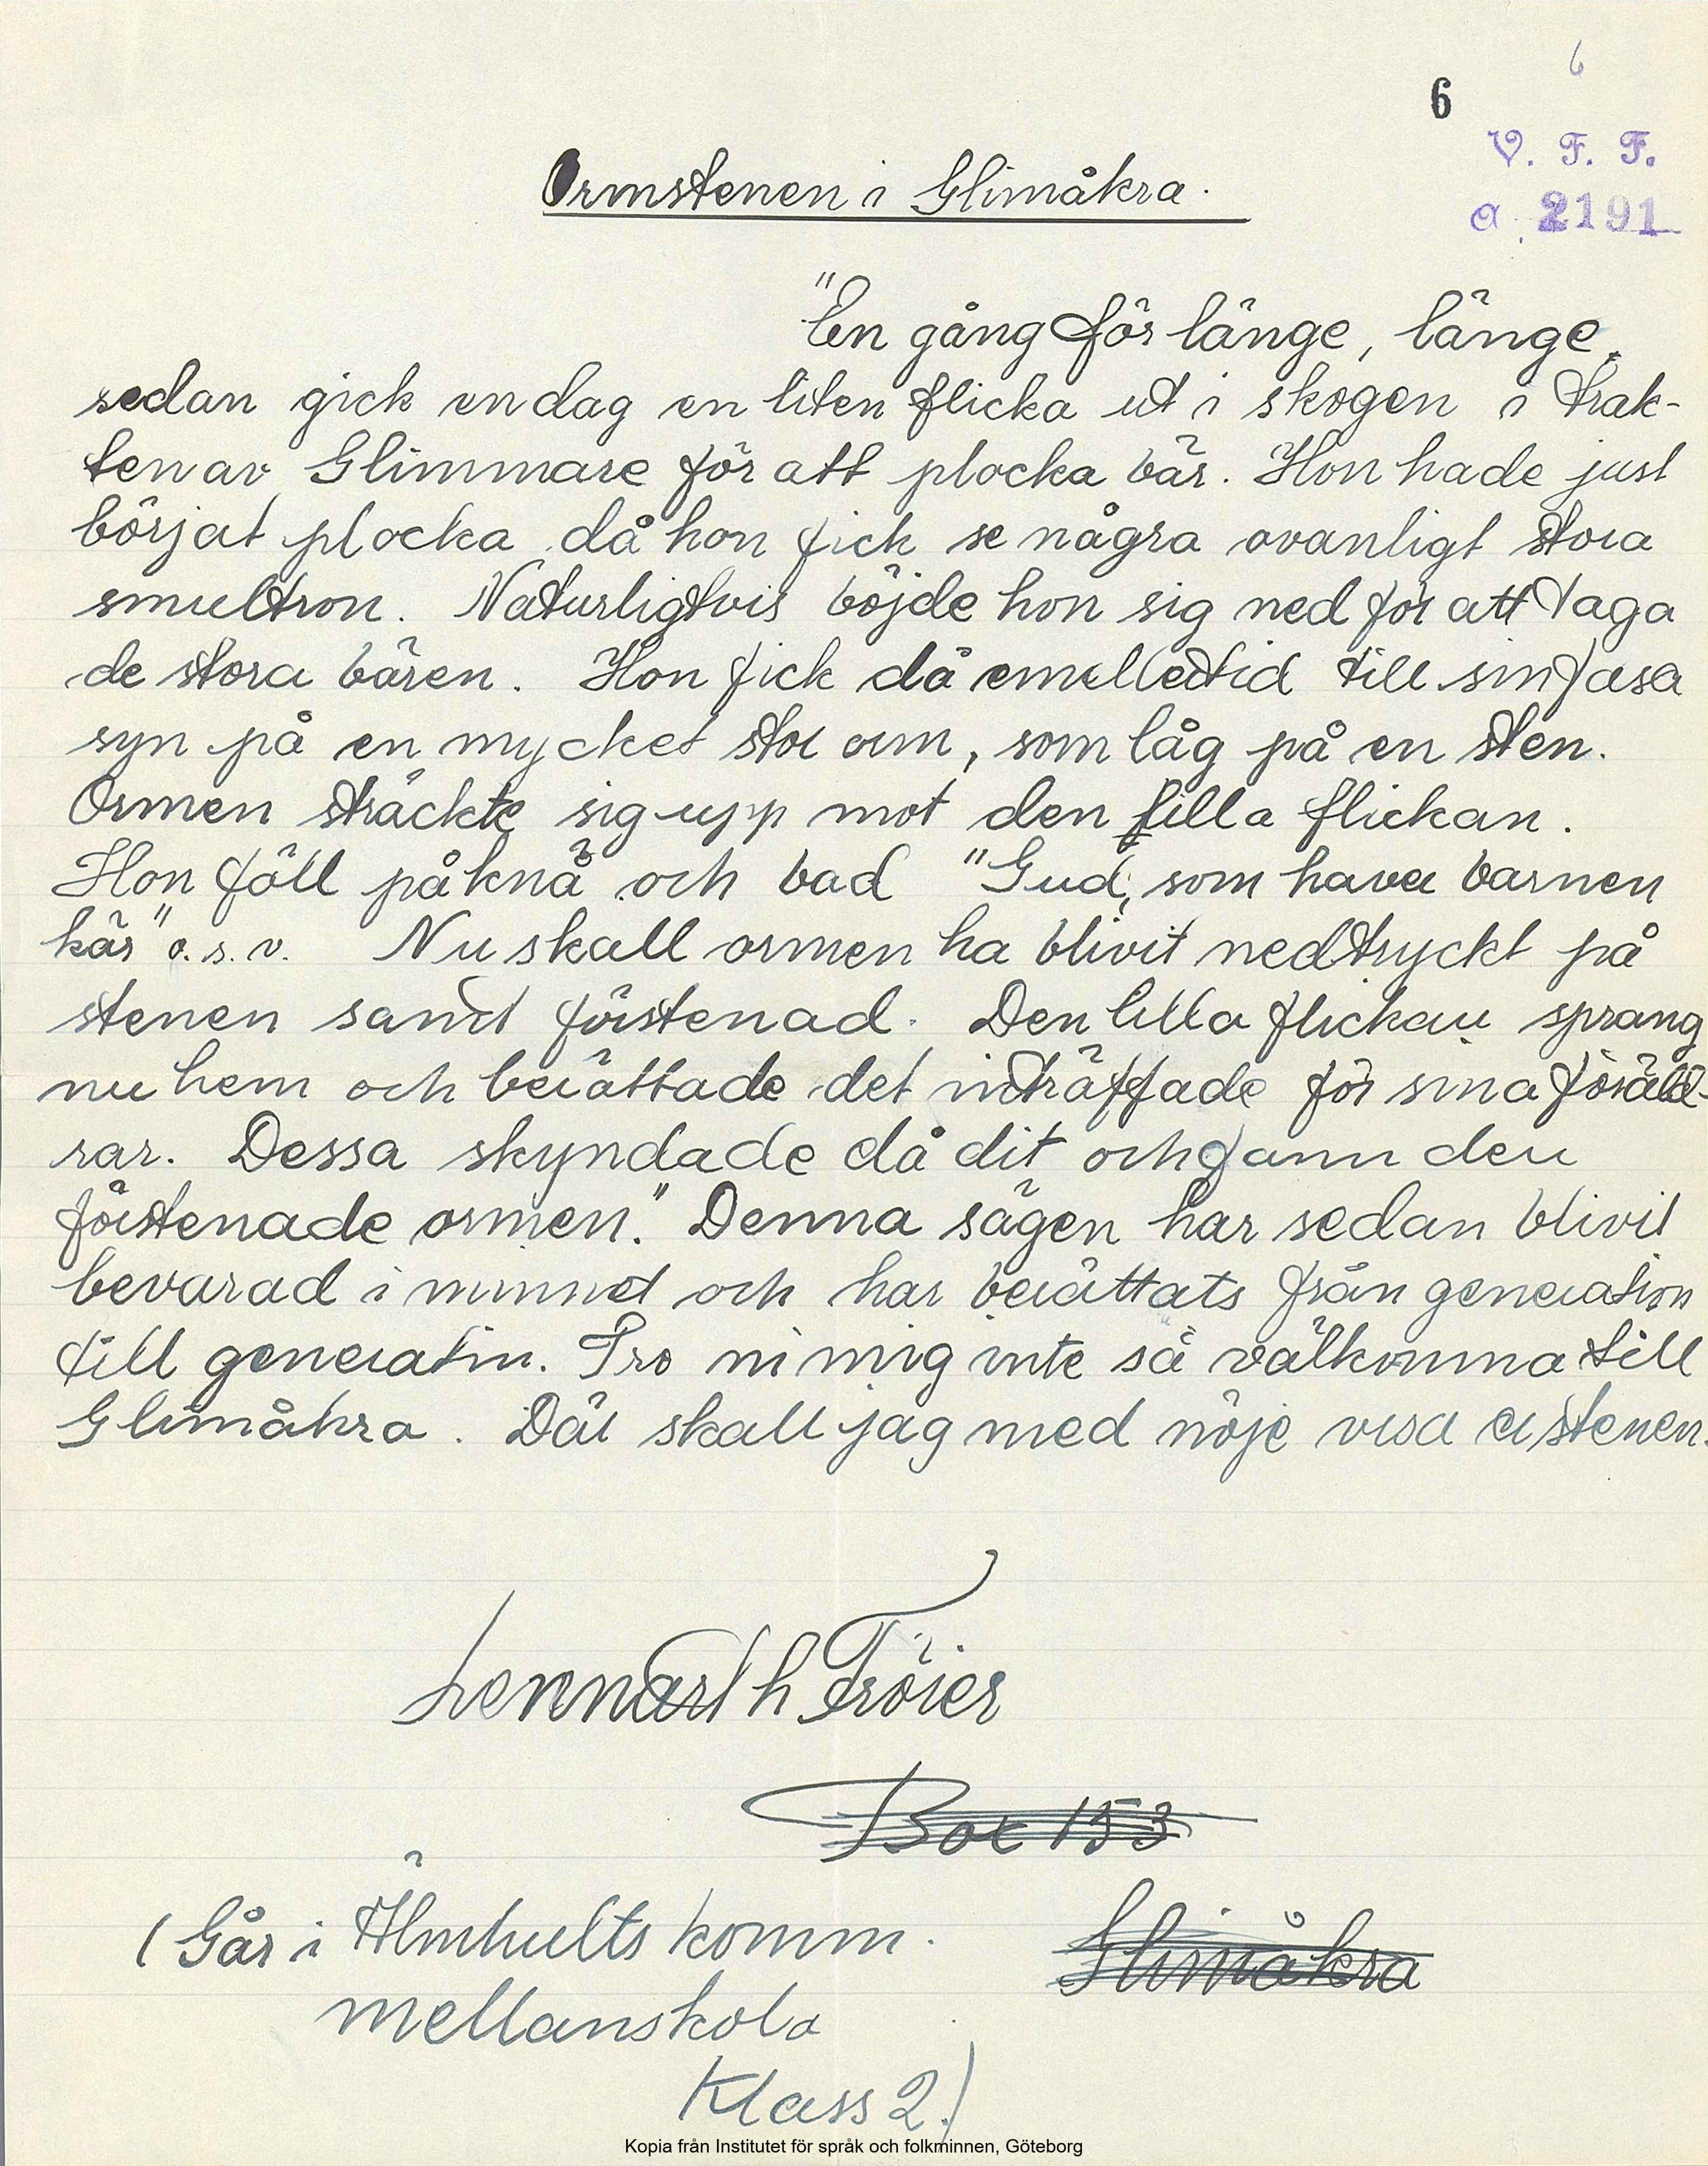 6
6
V. F. F.
a. 2191
Ormstenen i Glimåkra.
"En gång för länge, länge
sedan gick en dag en liten flicka ut i skogen i trak-
ten av Glimmare för att plocka bär. Hon hade just
börjat plocka då hon fick se några ovanligt stora
smultron. Naturligtvis böjde hon sig ned för att taga
de stora bären. Hon fick då emellertid till sin fasa
syn på en mycket stor orm, som låg på en sten.
Ormen sträckte sig upp mot den lilla flickan.
Hon föll på knä och bad "Gud, som haver barnen
kär" o.s.v. Nu skall ormen ha blivit nedtryckt på
stenen samt förstenad. Den lilla flickan sprang
nu hem och berättade det inträffade för sina föräld-
rar. Dessa skyndade då dit och fann den
förstenade ormen." Denna sägen har sedan blivit
bevarad i minnet och har berättats från generation
till generation. Tro ni mig inte så välkomna till
Glimåkra. Där skall jag med nöje visa er stenen.
Lennarth Tröier
Box 153
(Går i Älmhults komm.
Glimåkra
mellanskola
Klass 2.)
Kopia från Institutet för språk och folkminnen, Göteborg